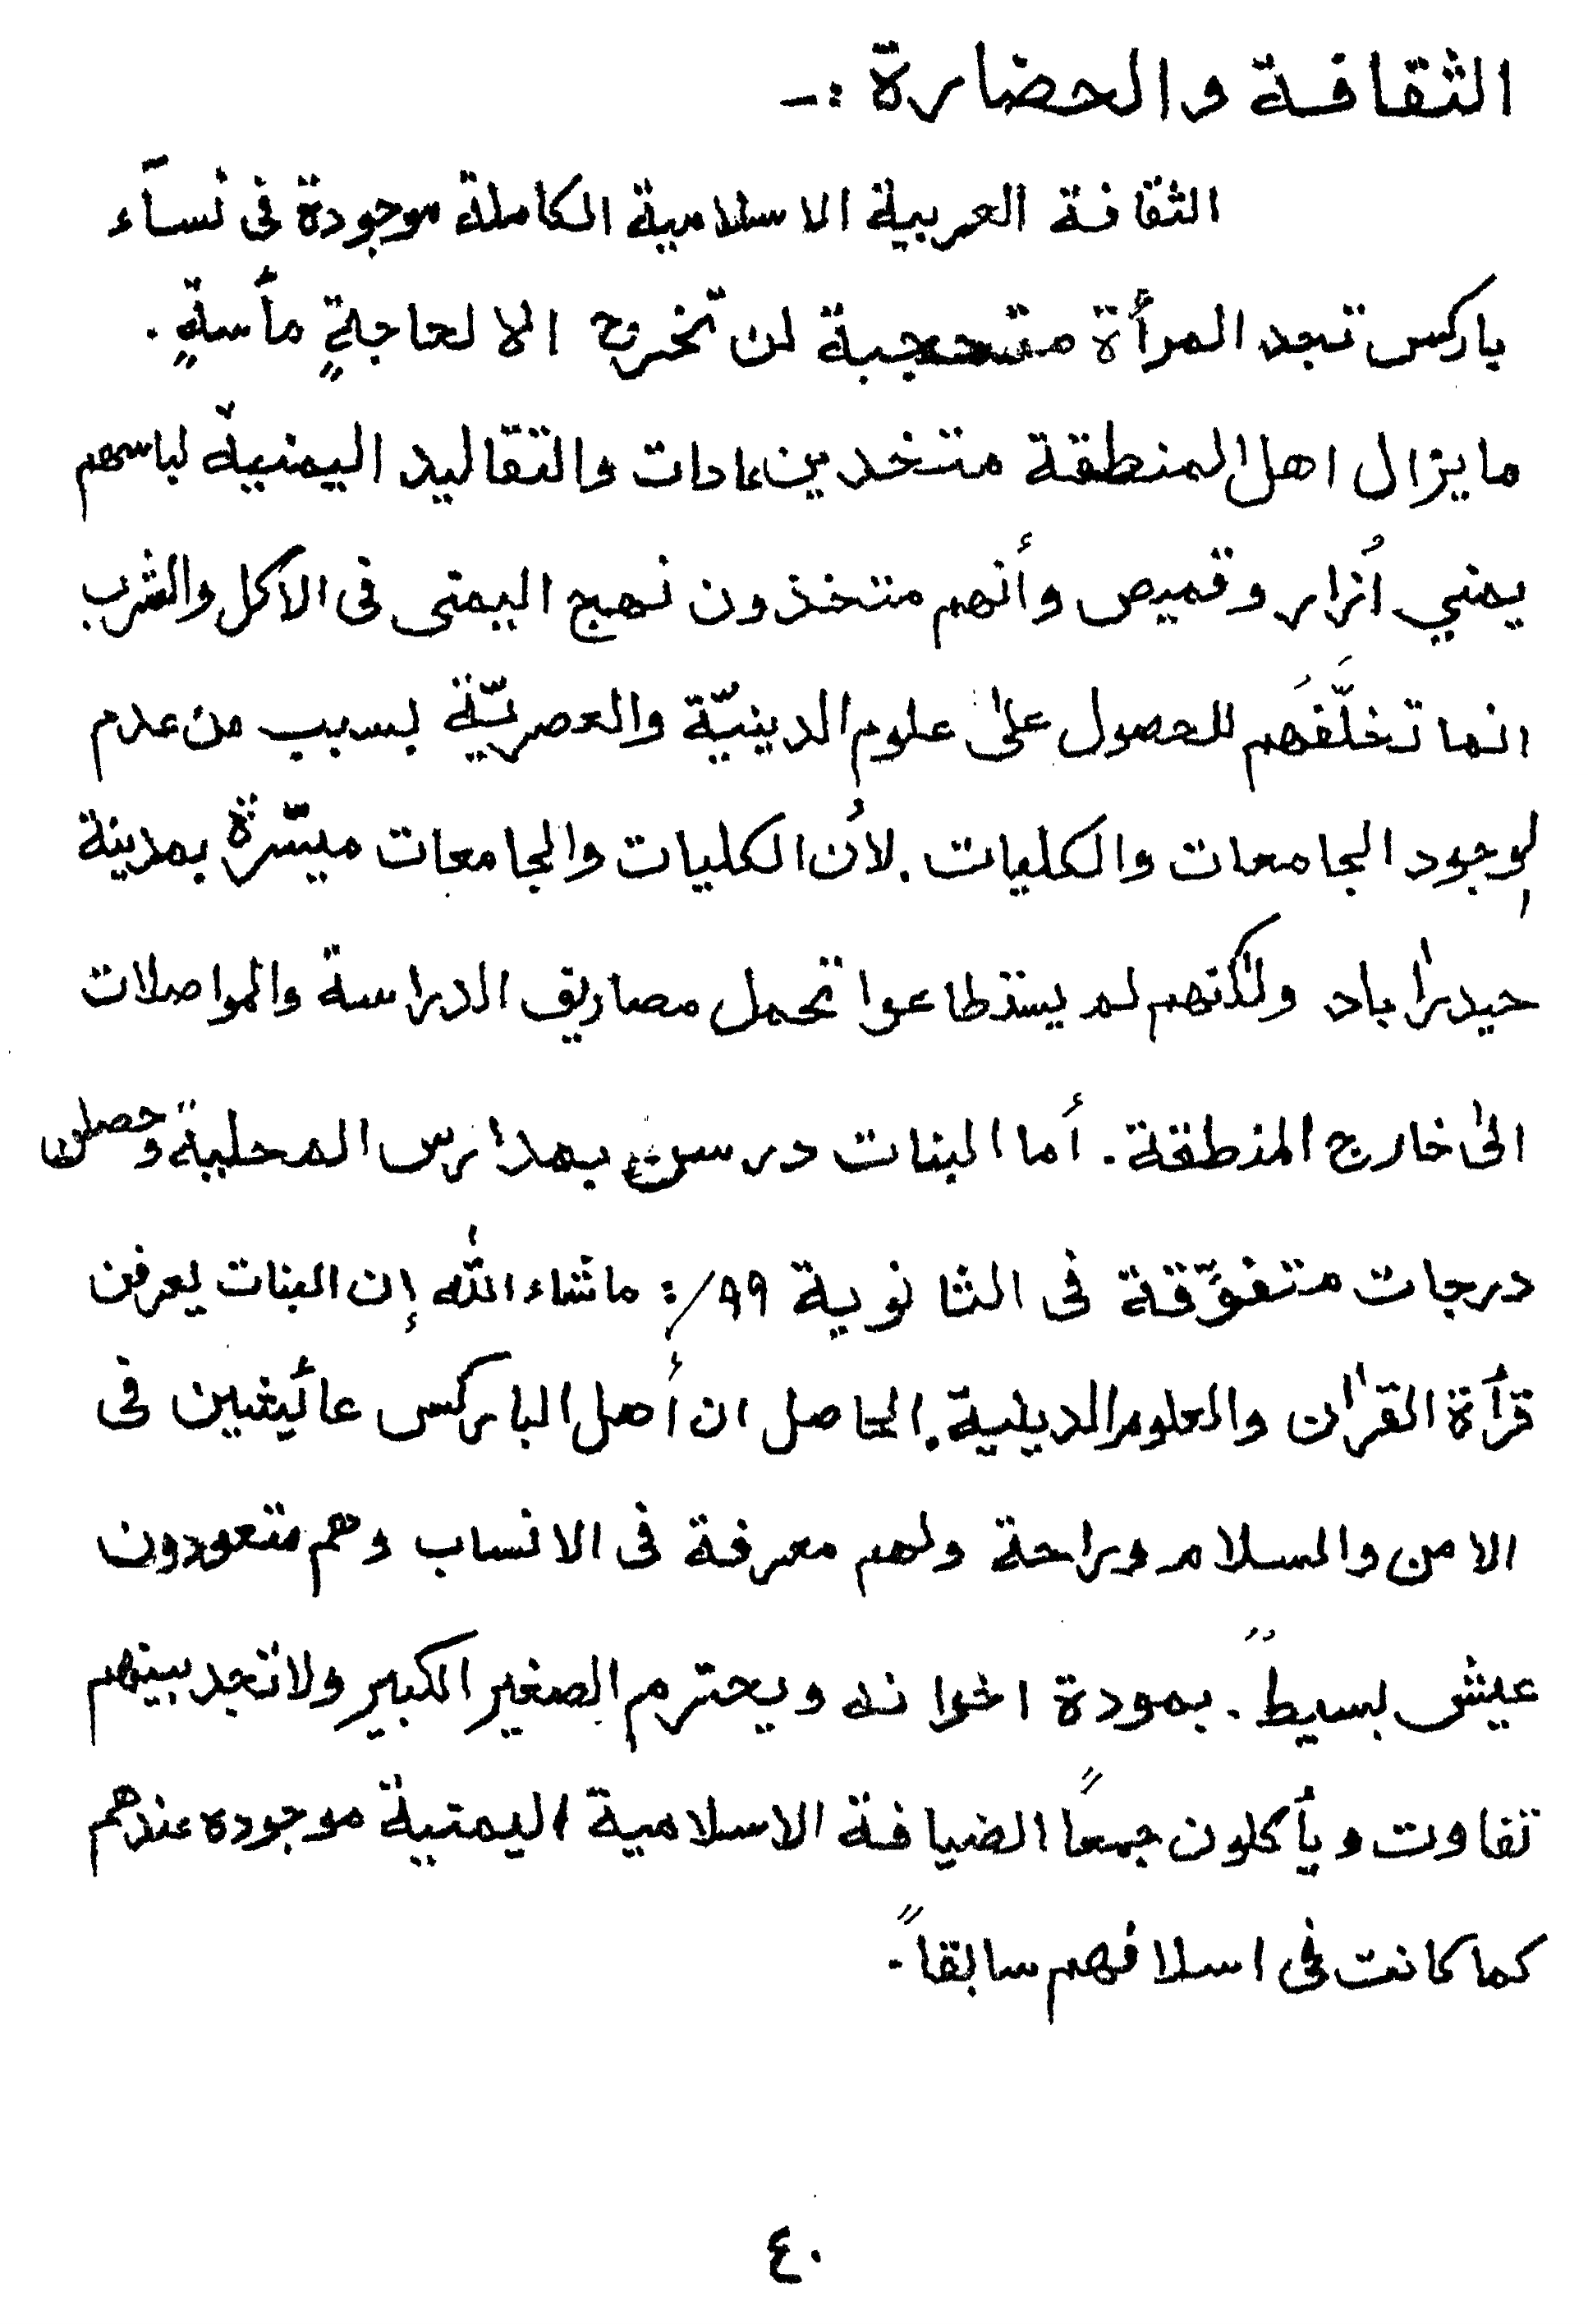 الثقافة والحضارة :-
الثقافة العربية الاسلامية الكاملة موجودة فى نسآء
باركس تجد المرأة متحجبة لن تخرج الا لحاجةٍ مأسةٍ .
مايزال اهل المنطقة متخدين عادات والتقاليد اليمنية لباسهم
يمني أُزار وقميص وأنهم متخذون نهج اليمنى فى الاكل والشرب
انما تخلّفَهم للحصول على علوم الدينيّة والعصريّة بسبب من عدم
لوجود الجامعات والكليات . لأن الكليات والجامعات ميسّرة بمدينة
حيدراباد ولكنهم لم يستطاعوا تحمل مصاريف الدراسة والمواصلات
الى خارج المنطقة . أما البنات درسن بمدارس المحلية وحصلن
درجات متفوّقة فى الثانوية ٩٩٪ ماشاء الله إن البنات يعرفن
قرأة القران والعلوم الدينية . الحاصل ان أهل الباركس عائيشين فى
الامن والسلام وراحة ولهم معرفة فى الانساب وهم متعودون
عيش بسيطً . بمودة اخوانه ويحترم الصغير الكبير ولاتجد بينهم
تفاوت ويأكلون جمعاً الضيافة الاسلامية اليمنية موجوده عندهم
كما كانت فى اسلافهم سابقاً .
٤٠